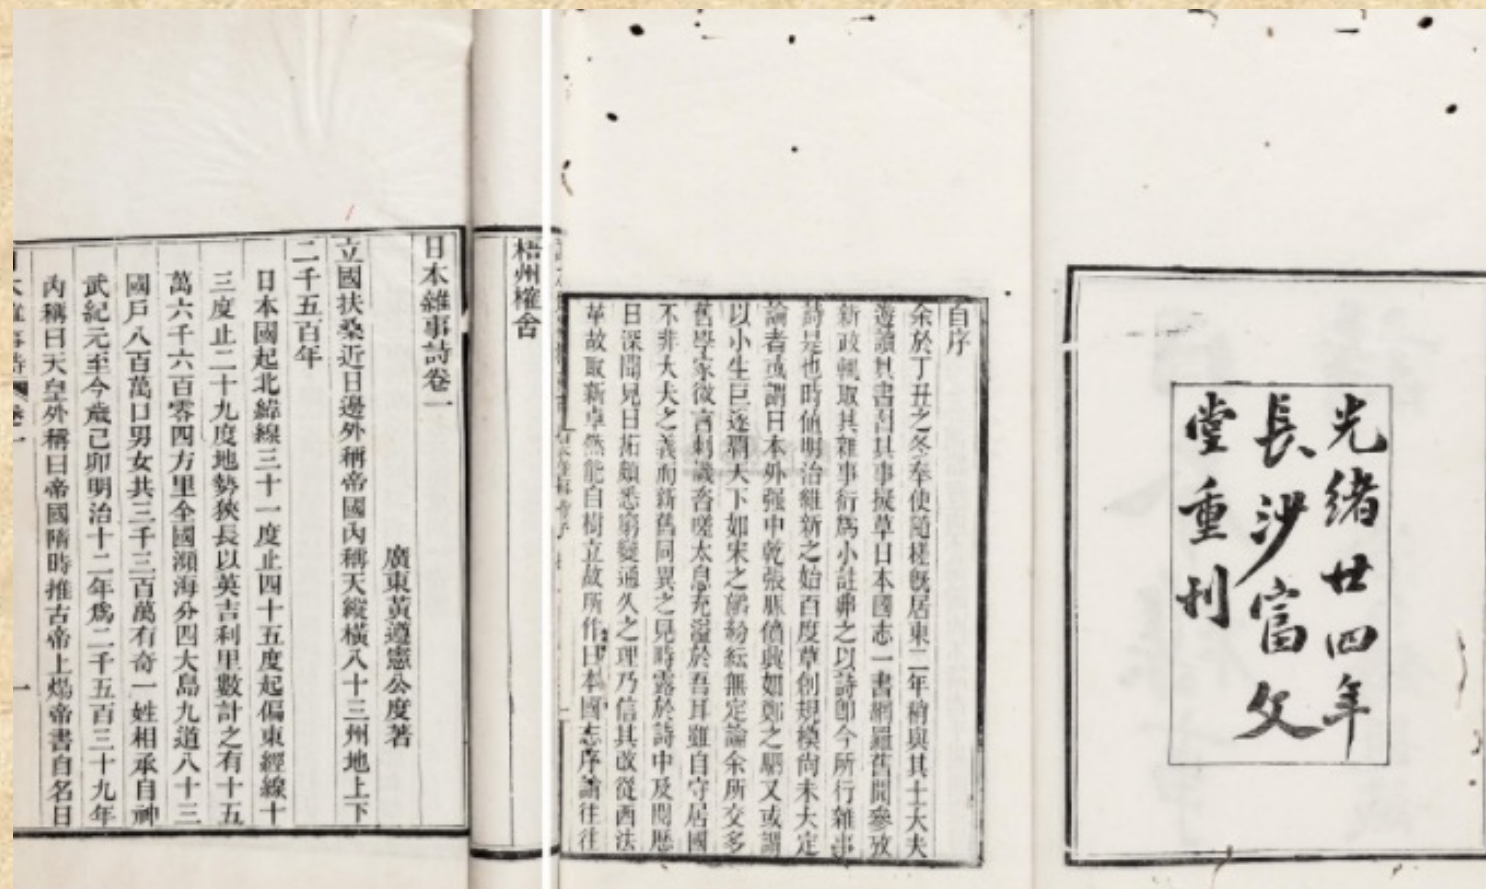 光緒廿四年
長沙富文
堂重刊
自序
余於丁丑之冬奉使隨槎旣居東二年稍與其士大夫
遊讀其書習其事擬草日本國志一書網羅舊聞參攷
新政輒取其雜事衍爲小註串之以詩卽今所行雜事
詩是也時値明治維新之始百度草創規模尙未大定
論者或謂日本外强中乾張脉僨興如鄭之駟又或謂
以小生巨遂霸天下如宋之鸇紛紜無定論余所交多
舊學家微言刺譏咨嗟太息充溢於吾耳雖自守居國
不非大夫之義而新舊同異之見時露於詩中及閱歷
日深聞見日拓頗悉窮變通久之理乃信其改從西法
革故取新卓然能自樹立故所作日本國志序論往往
梧州榷舍
日本雜事詩卷一
廣東黃遵憲公度著
立國扶桑近日邊外稱帝國內稱天縱橫八十三州地上下
二千五百年
日本國起北緯線三十一度止四十五度起偏東經線十
三度止二十九度地勢狹長以英吉利里數計之有十五
萬六千六百零四方里全國瀕海分四大島九道八十三
國戶八百萬口男女共三千三百萬有奇一姓相承自神
武紀元至今歲己卯明治十二年爲二千五百三十九年
內稱曰天皇外稱曰帝國隋時推古帝上煬帝書自名日